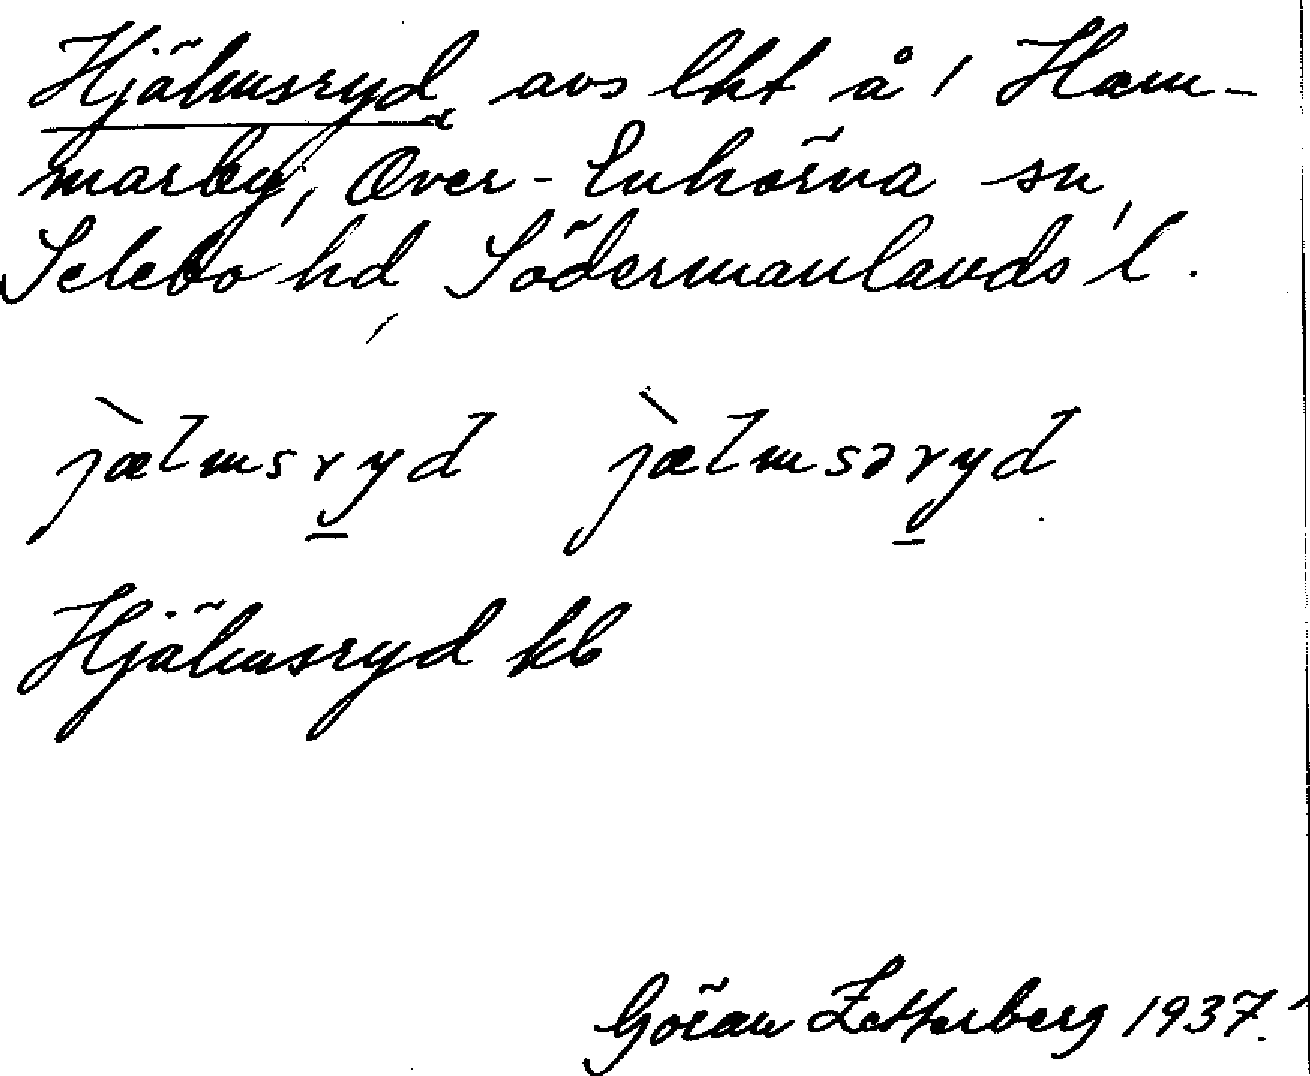 Hjälmsryd, avs lht å 1 Ham-
marby, Över-Enhörna sn,
Selebo hd, Södermanlands l.
jàlmsryd jælmsəryd
Hjälmsryd kb
Göran Zetterberg 1937.